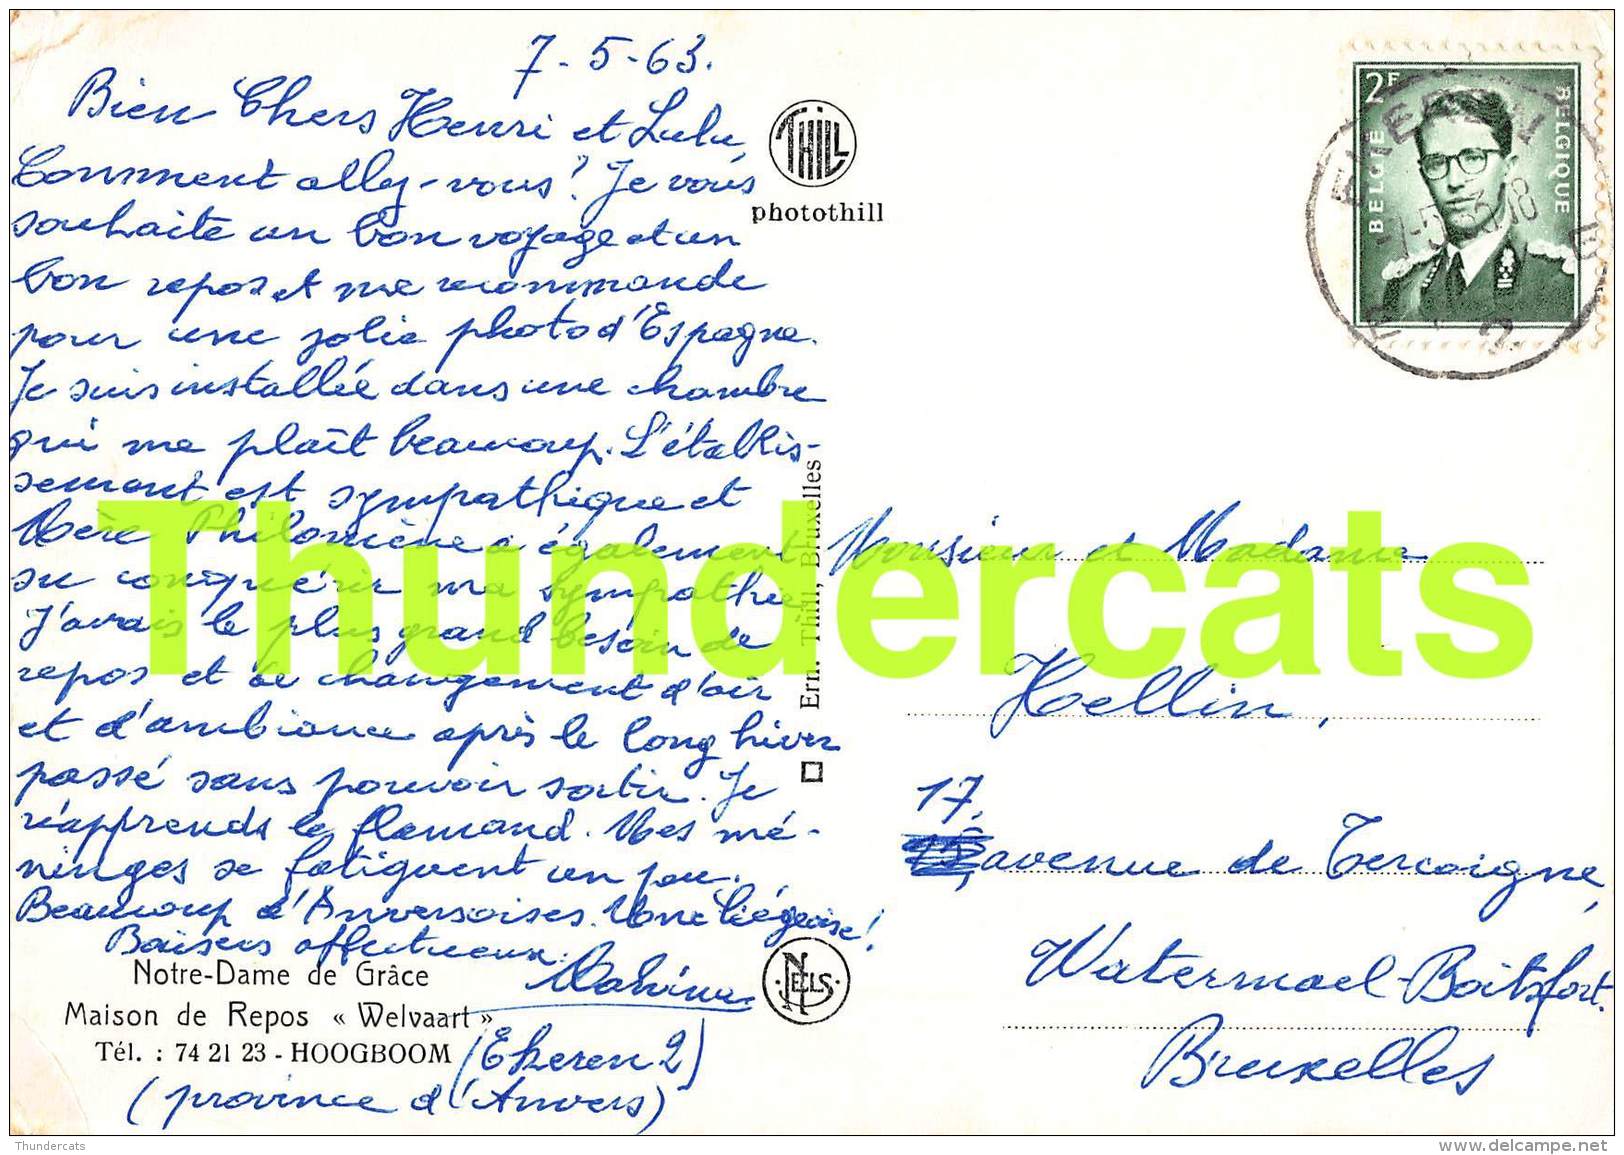 7-5-63.
Bien Chers Henri et Lulu,
Comment allez-vous? Je vous
souhaite un bon voyage et un
bon repos et me recommande
pour une jolie photo d'Espagne.
Je suis installée dans une chambre
qui me plaît beaucoup. L'établis-
sement est sympathique et
Mère Philomène a également
su conquérir ma sympathie
J'avais le plus grand besoin de
repos et de changement d'air
et d'ambiance après le long hiver
passé sans pouvoir sortir. Je
réapprends le flamand. Mes mé-
ninges se fatiguent un peu.
Beaucoup d'Anversoises. Une liégeoise!
Baisers affectueux.
Notre-Dame de Grâce
Maison de Repos « Welvaart »
Tél. : 74 21 23 - HOOGBOOM (Ekeren 2)
(province d'Anvers)
THILL
photothill
Ern. Thill, Bruxelles
NELS
2F
BELGIE
BELGIQUE
Monsieur et Madame
Hellin,
17,
avenue de Tercoigne,
Watermael-Boitsfort.
Bruxelles
Thundercats
Thundercats
delcampe.net